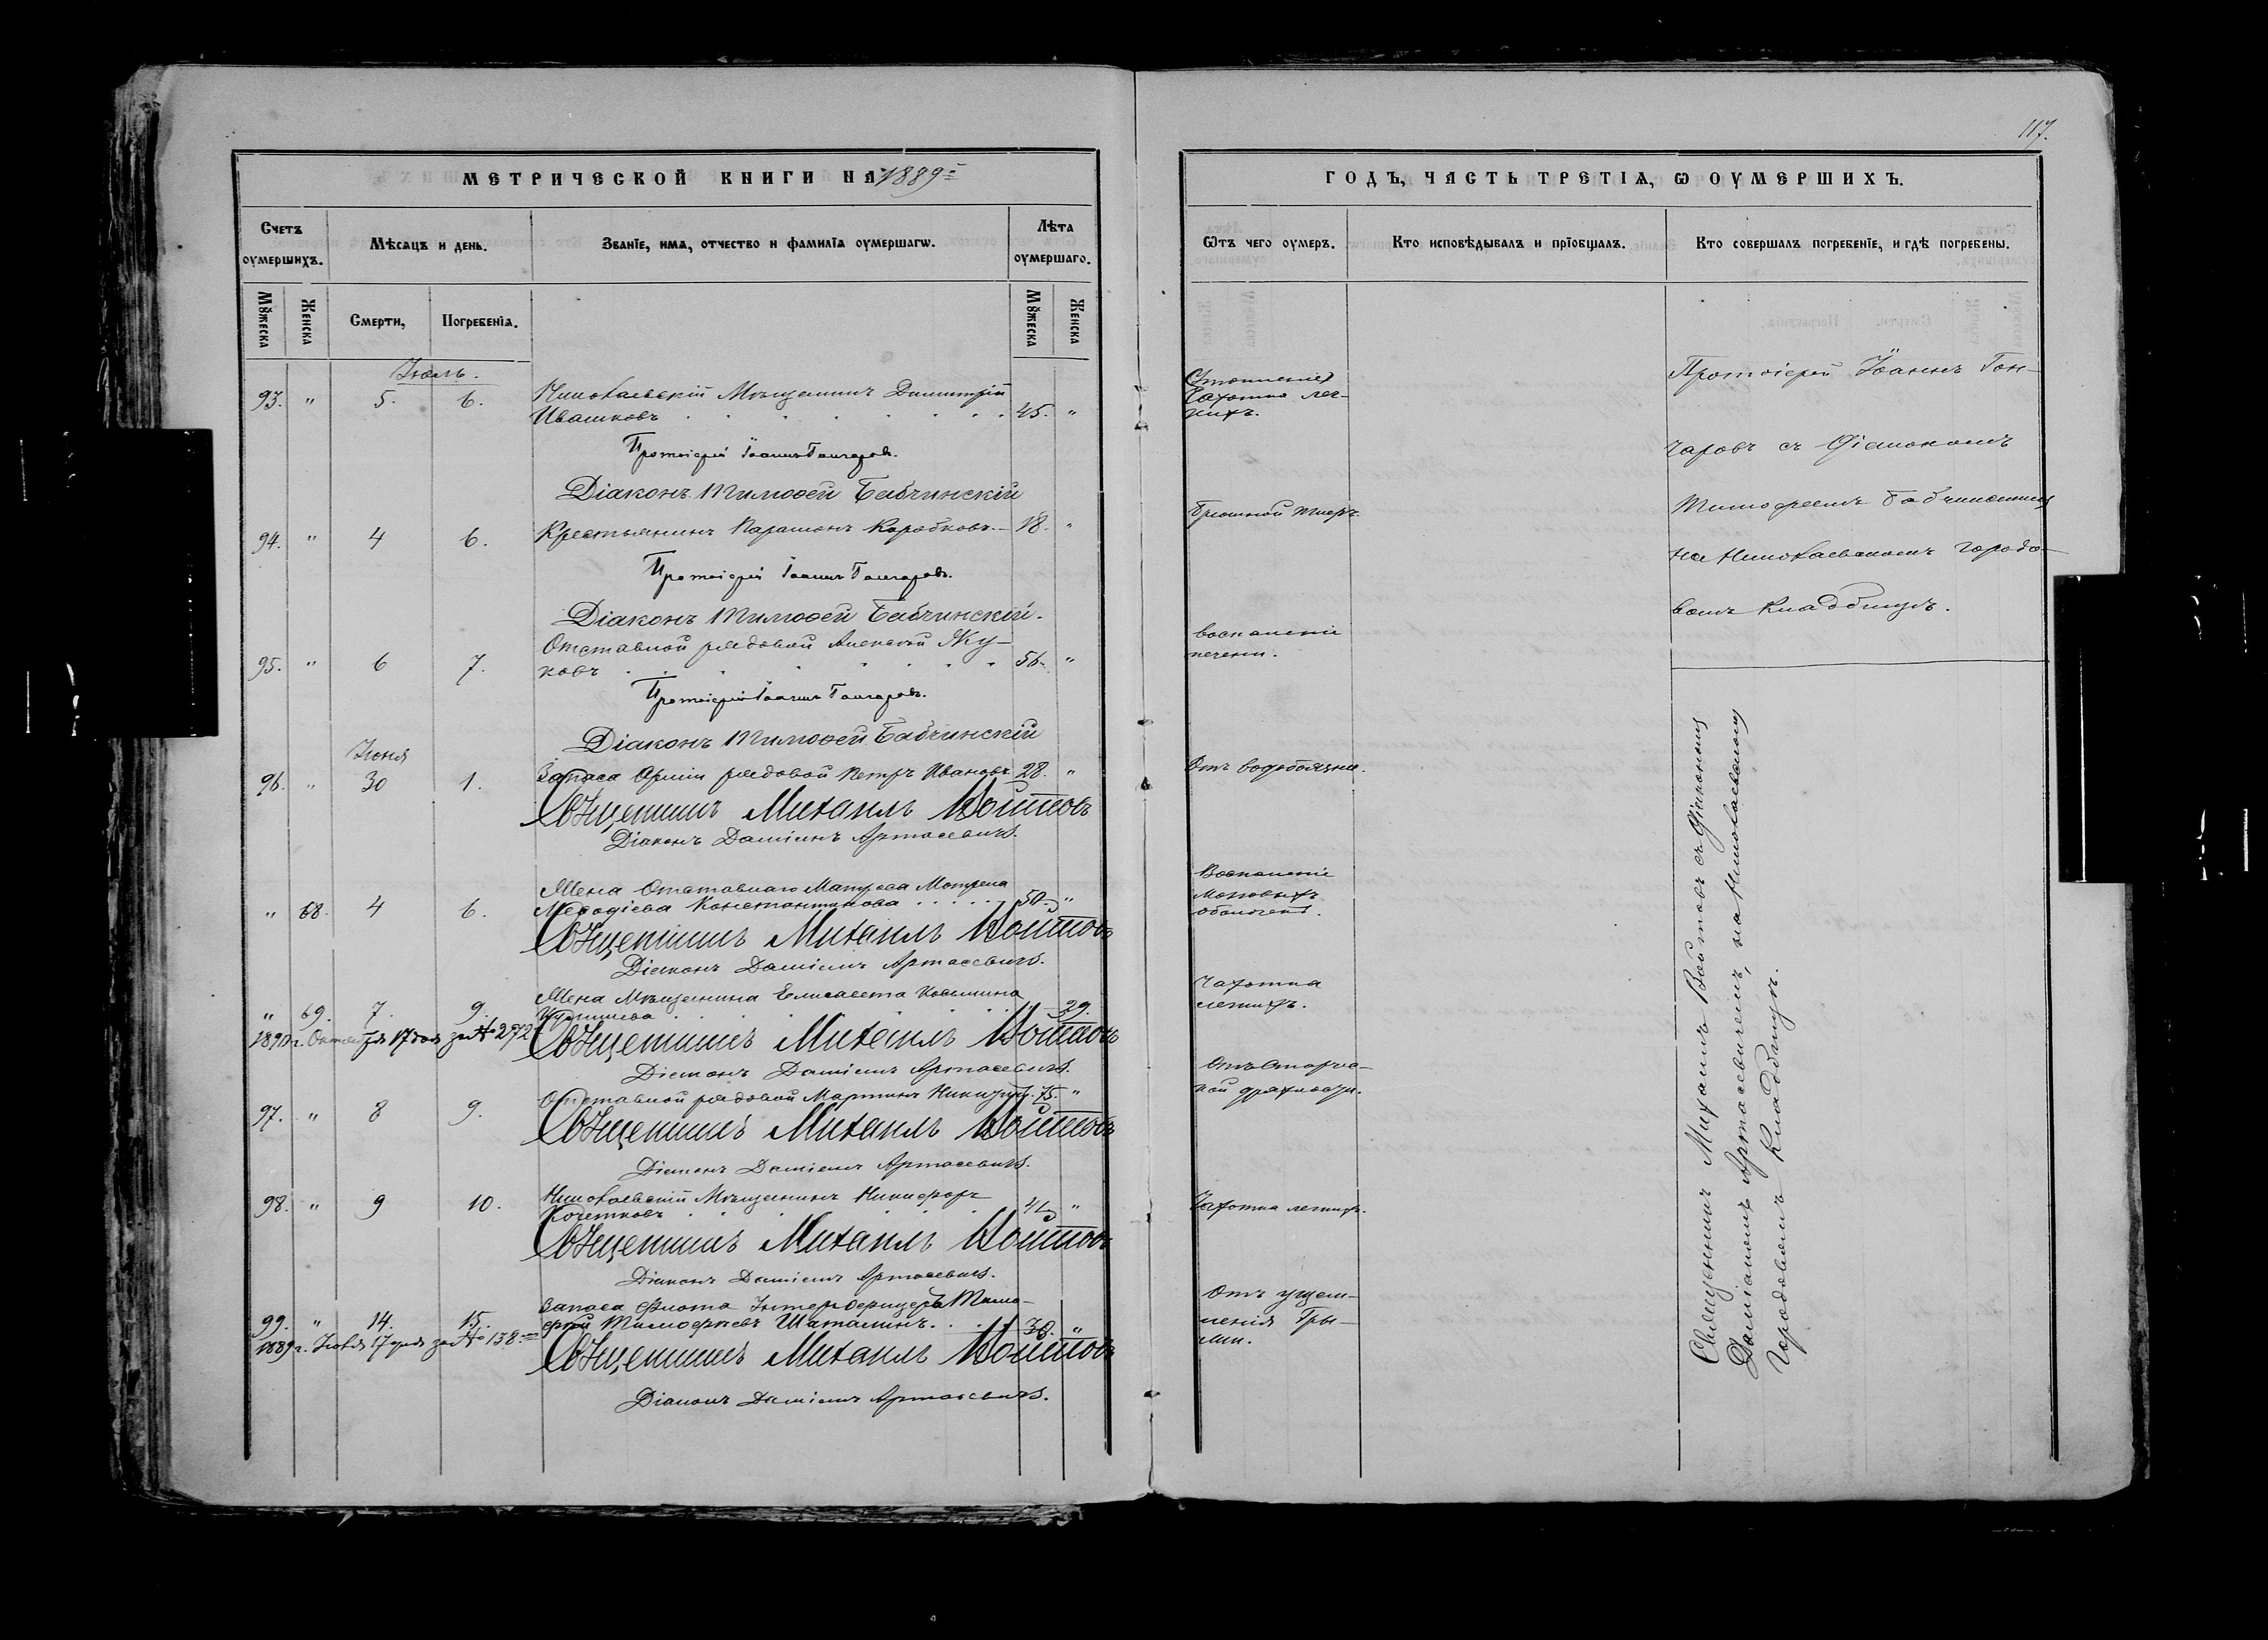 117.
МЕТРИЧЕСКОЙ КНИГИ НА 1889
ГОДЪ, ЧАСТЬ ТРЕТІѦ, Ѡ ОУМЕРШИХЪ.
Счетъ оумершихъ.
Мѣсѧцъ и день.
Званїе, имѧ, отчество и фамилїа оумершагѡ.
Лѣта оумершаго.
Ѿтъ чего оумеръ.
Кто исповѣдывалъ и прїобщалъ.
Кто совершалъ погребенїе, и гдѣ погребены.
Мꙋжеска
Женска
Смерти,
Погребенїѧ.
Мꙋжеска
Женска
Іюль.
93. " 5. 6. Николаевскій Мѣщанинъ Димитрій
Ивашковъ 45. "
Чахотка лег-
кихъ.
Протоіерей Іоаннъ Гончаровъ.
Діаконъ Тимоѳей Бабчинскій
94. " 4 6. Крестьянинъ Парамонъ Коробковъ. 18. "
Брюшной тифъ
Протоіерей Іоаннъ Гончаровъ.
Діаконъ Тимоѳей Бабчинскій.
95. " 6 7. Отставной рядовой Алексѣй Жу-
ковъ 56. "
Воспаленіе
печени.
Протоіерей Іоаннъ Гончаровъ.
Діаконъ Тимоѳей Бабчинскій
Протоіерей Іоаннъ Гон-
чаровъ съ Діакономъ
Тимофеемъ Бабчинскимъ
на Николаевскомъ городо-
вомъ кладбищѣ.
Іюня
96. " 30 1. Запаса Арміи рядовой Петръ Ивановъ 28. "
Отъ водобоязни.
Священникъ Михаилъ Войтовъ
Діаконъ Даміанъ Артасевичъ.
" 68. 4 6. Жена Отставнаго Матроса Матрена
Меѳодіева Константинова 50. "
Воспаленіе
мозговыхъ
оболочекъ.
Священникъ Михаилъ Войтовъ
Діаконъ Даміанъ Артасевичъ.
" 69. 7. 9. Жена Мѣщанина Елисавета Косьмина
" 29.
Чахотка
легкихъ.
1890 г. Октября 17 дня за № 272
Священникъ Михаилъ Войтовъ
Діаконъ Даміанъ Артасевичъ.
97. " 8 9. Отставной рядовой Мартинъ 75. "
Отъ старче-
ской дряхлости.
Священникъ Михаилъ Войтовъ
Діаконъ Даміанъ Артасевичъ.
98. " 9 10. Николаевскій Мѣщанинъ Никифоръ
Кочетковъ "
Чахотка легкихъ.
Священникъ Михаилъ Войтовъ
Діаконъ Даміанъ Артасевичъ.
99. " 14. 15. Запаса Флота Унтеръ-офицеръ Тимо-
фей Тимофеевъ Шаталинъ. "
Отъ ущем-
ленія гры-
жи.
1889 г. Іюля 17 дня за № 138
Священникъ Михаилъ Войтовъ
Діаконъ Даміанъ Артасевичъ.
Священникъ Михаилъ Войтовъ съ Діакономъ
Даміаномъ Артасевичемъ, на Николаевскомъ
Городовомъ Кладбищѣ.